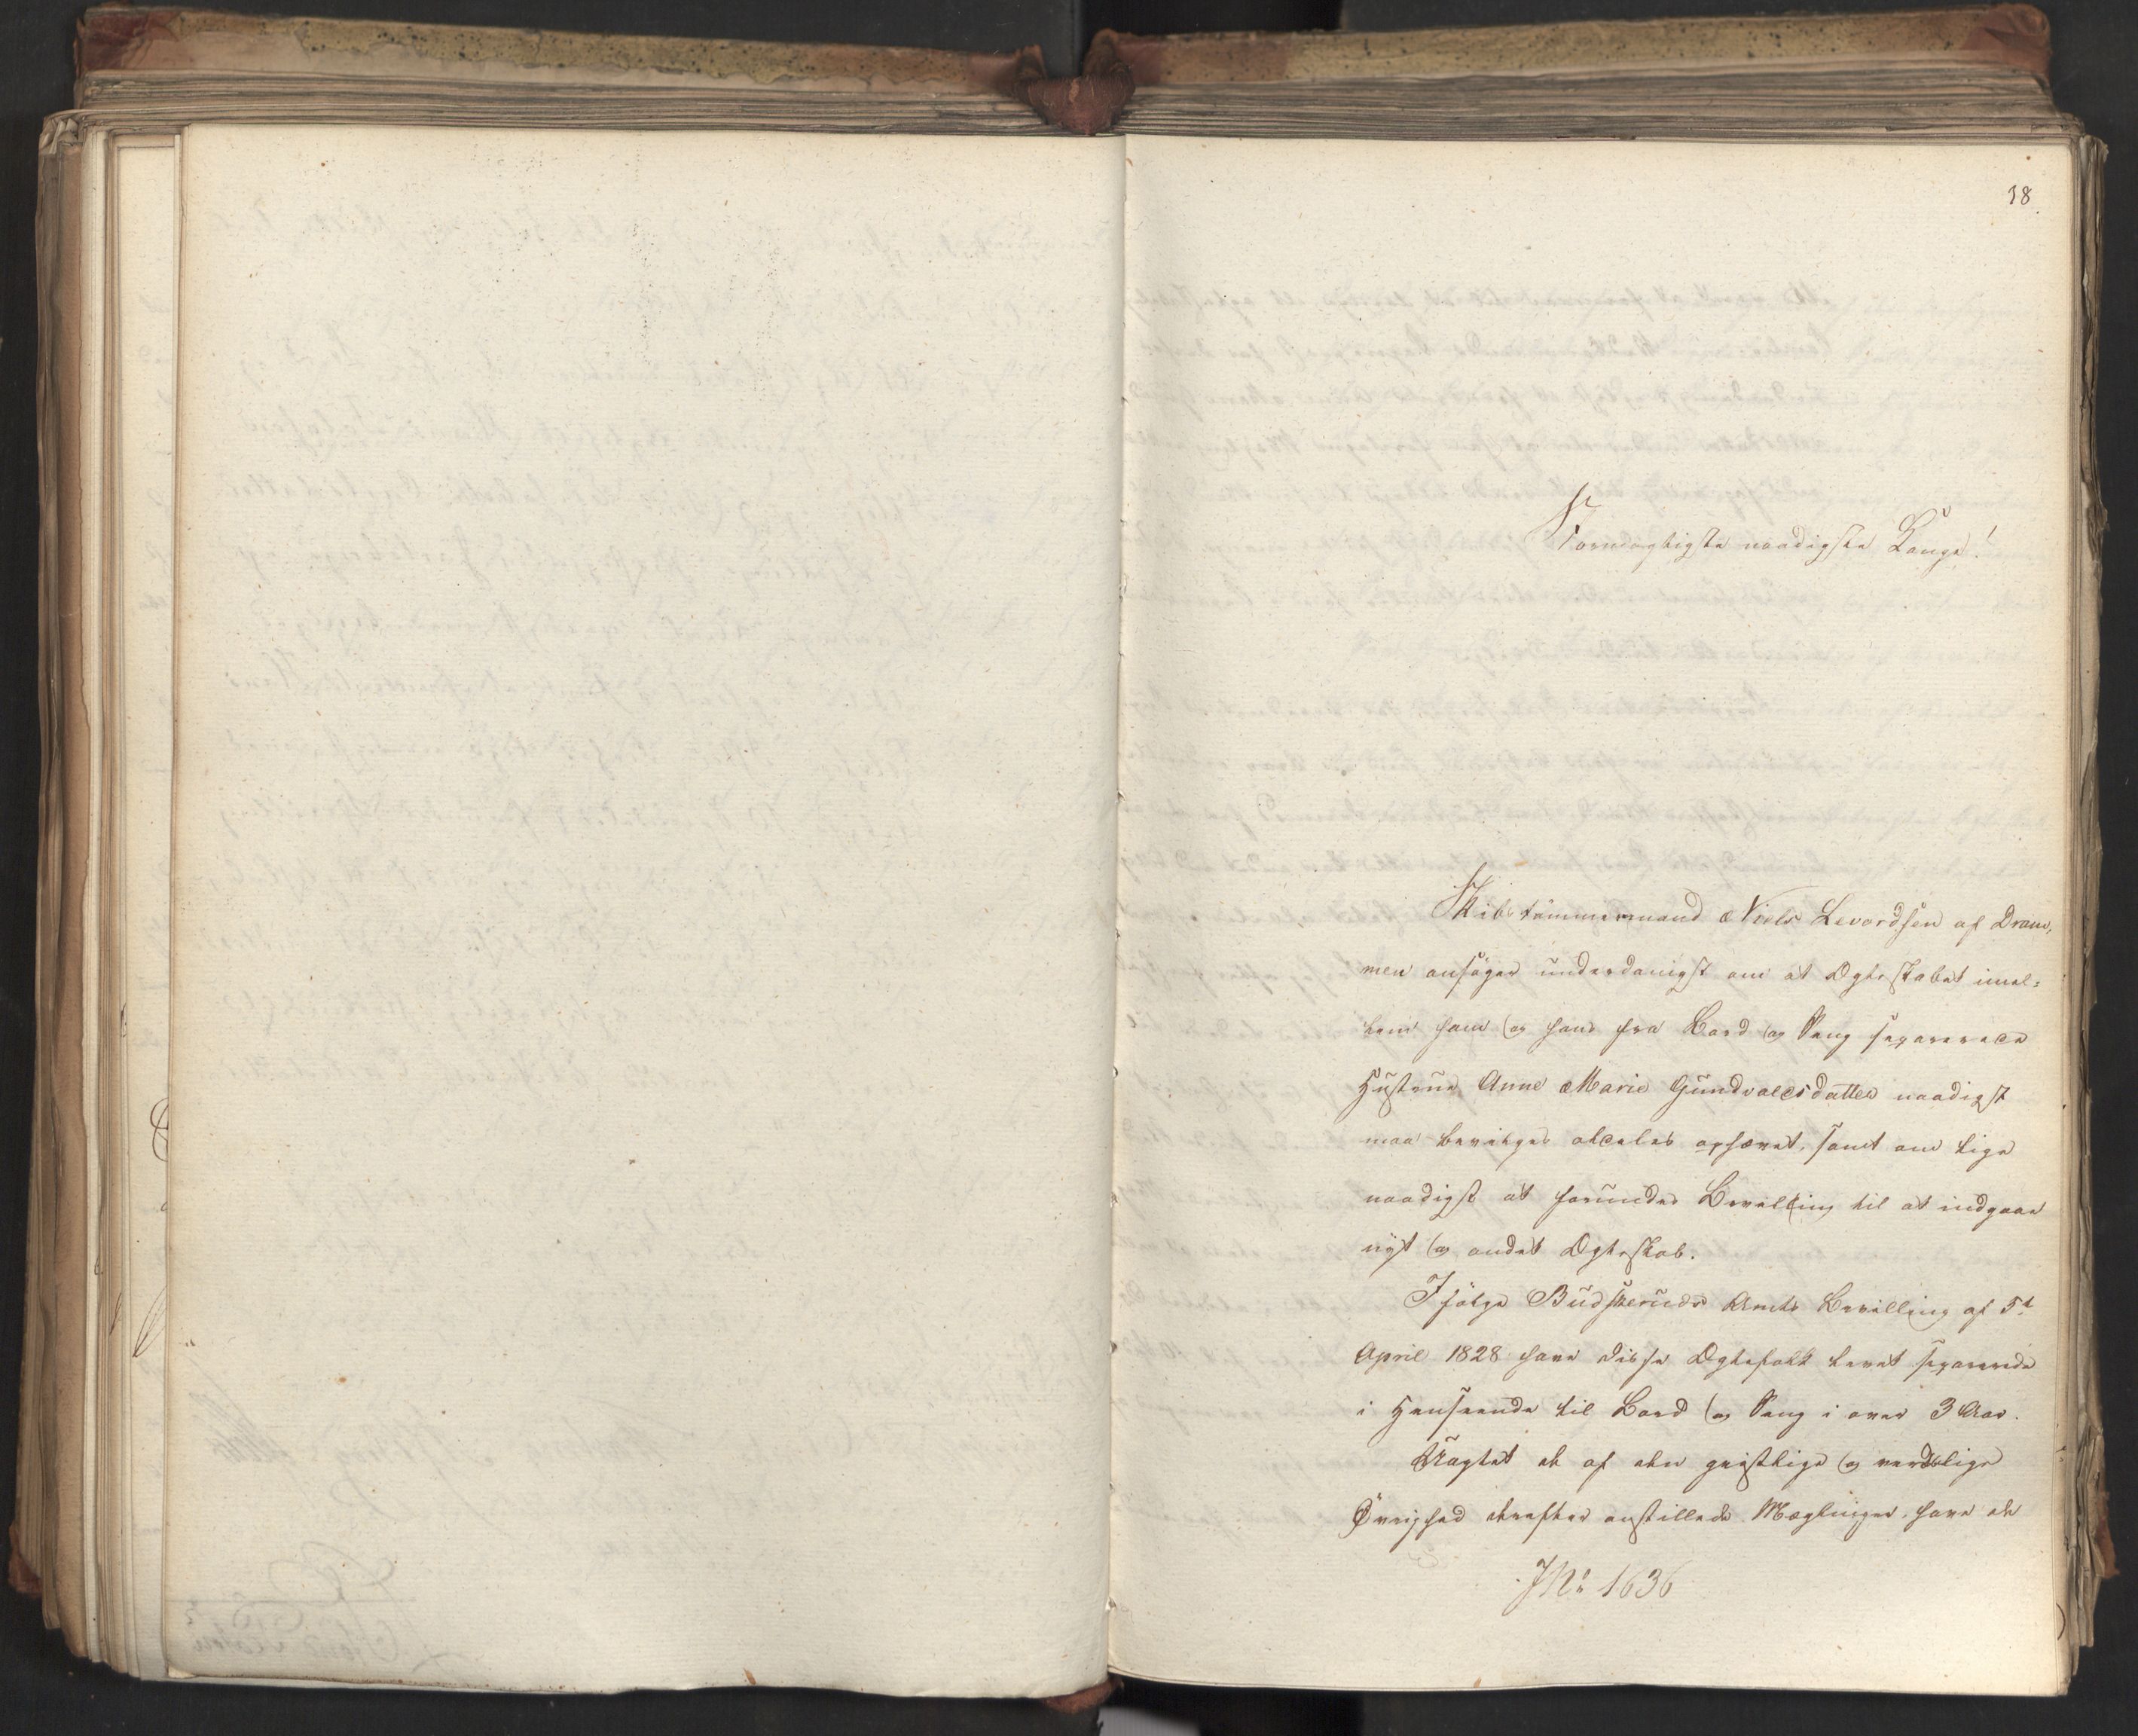 18
Stormægtigste naadigste Konge!
Skibstömmermand Niels Levordsen af Dram,
men ansöger underdanigst om at Ægteskabet imel=
lem ham og hans fra Bord og Seng separerede
Hustrue Anne Marie Gundvaldsdatter naadigst
maa bevilges aldeles ophævet, samt om lige
naadigst at forundes Bevilling til at indgaae
nyt og andet Ægteskab.
Ifölge Budskeruds Amts Bevilling af 5t
April 1828 have disse Ægtefolk levet separerede
i Henseende til Bord og Seng i over 3 Aar.
Uagtet de af den geistlige og verdslige
Övrighed derefter anstillede Mæglinger, have de
JNo 1636